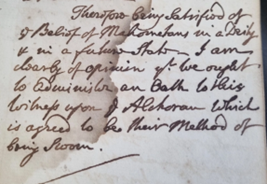 Therefore being Satisfied of
ye Belief of Mahometans in a Deity
& in a future State I am
clearly of opinion yt. we ought
to Administer an Oath to this
Witness upon ye Alchoran which
is agreed to be their Method of
being Sworn.